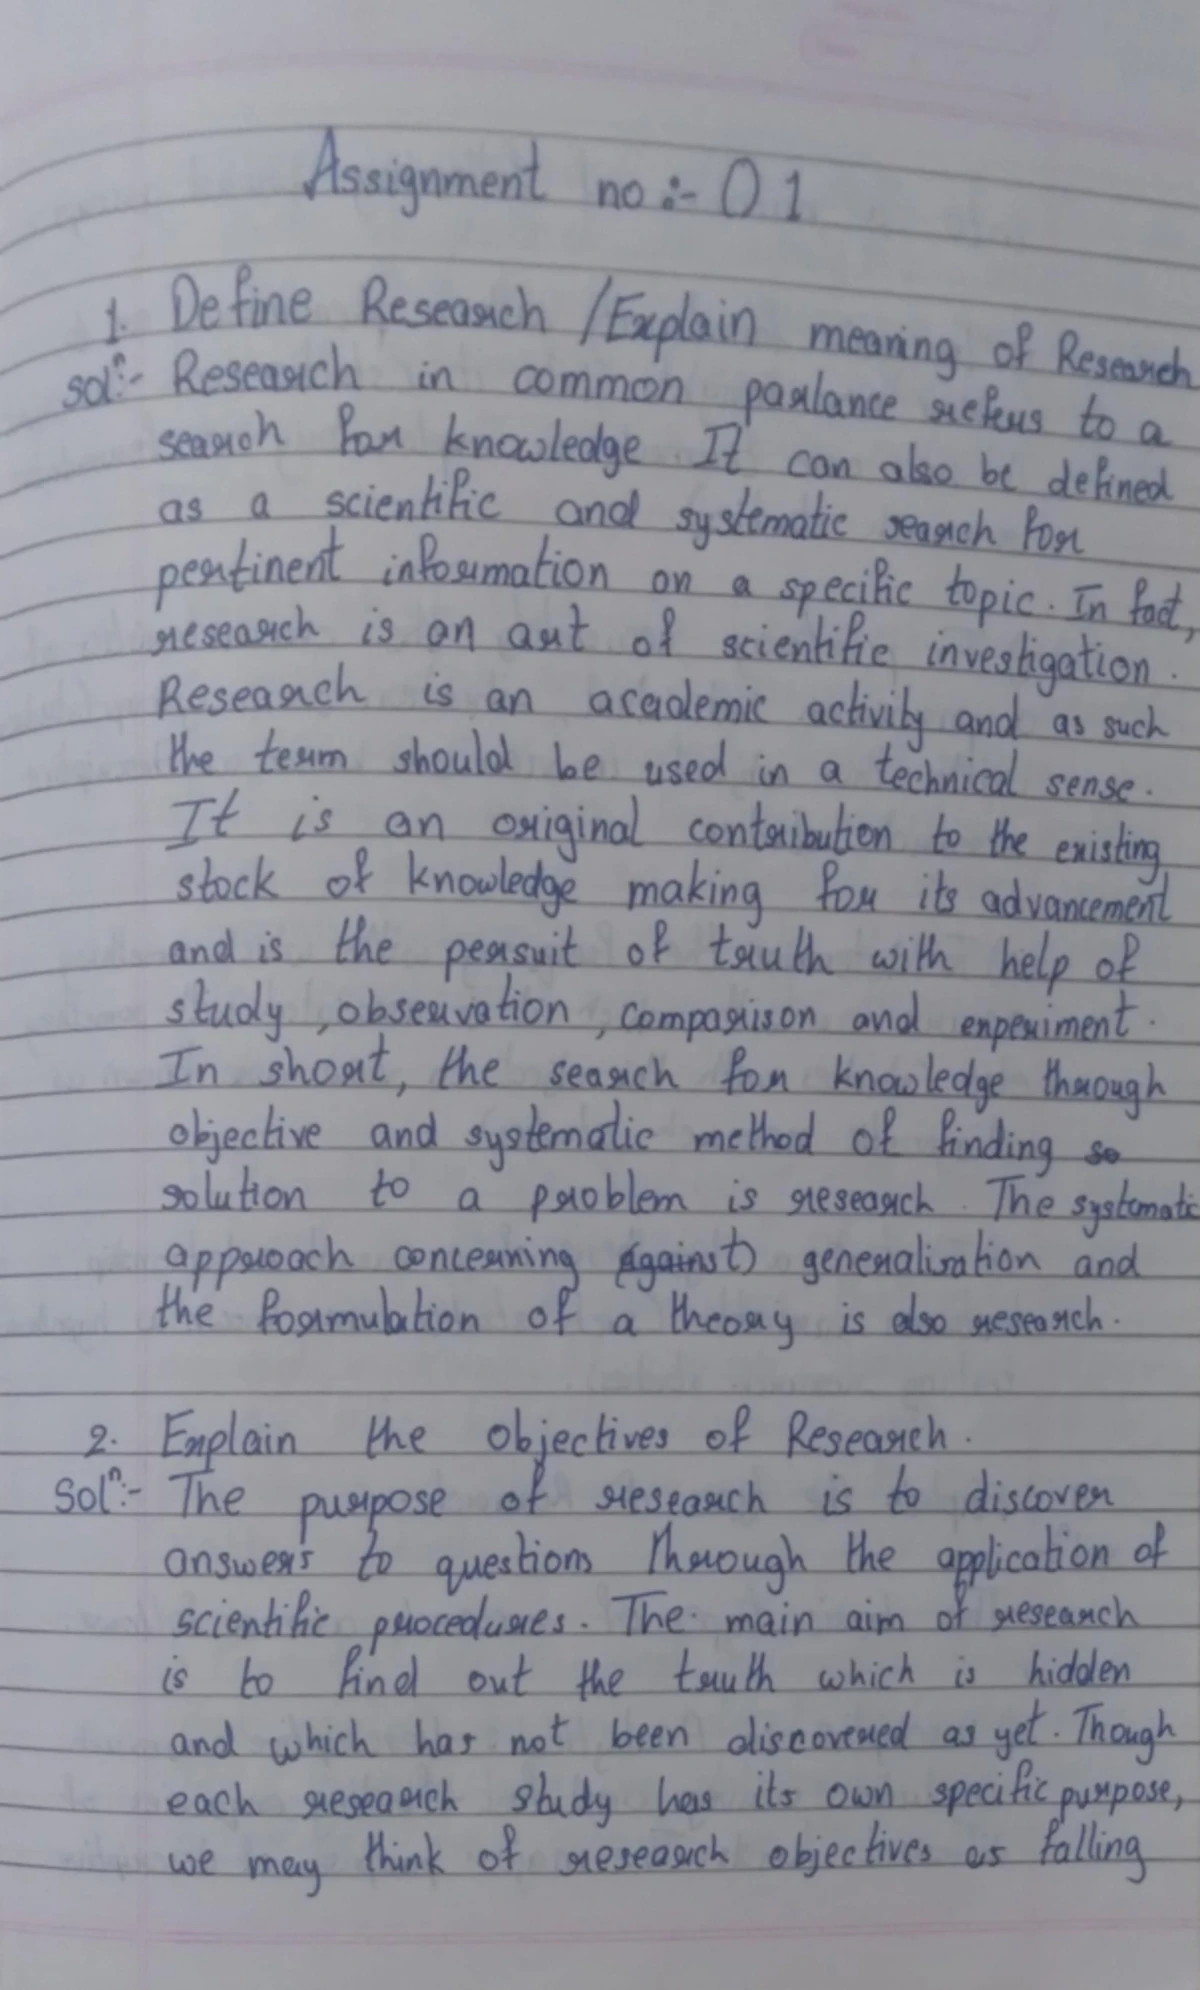 Assignment no :- 01
1. Define Research / Explain meaning of Research
solⁿ:- Research in common parlance refers to a
search for knowledge. It can also be defined
as a scientific and systematic search for
pertinent information on a specific topic. In fact,
research is an art of scientific investigation.
Research is an academic activity and as such
the term should be used in a technical sense.
It is an original contribution to the existing
stock of knowledge making for its advancement
and is the persuit of truth with help of
study, observation, comparison and experiment.
In short, the search for knowledge through
objective and systematic method of finding so
solution to a problem is research. The systematic
approach concerning (against) generalisation and
the formulation of a theory is also research.
2. Explain the Objectives of Research.
Solⁿ:- The purpose of research is to discover
answers to questions through the application of
scientific procedures. The main aim of research
is to find out the truth which is hidden
and which has not been discovered as yet. Though
each research study has its own specific purpose,
we may think of research objectives as falling